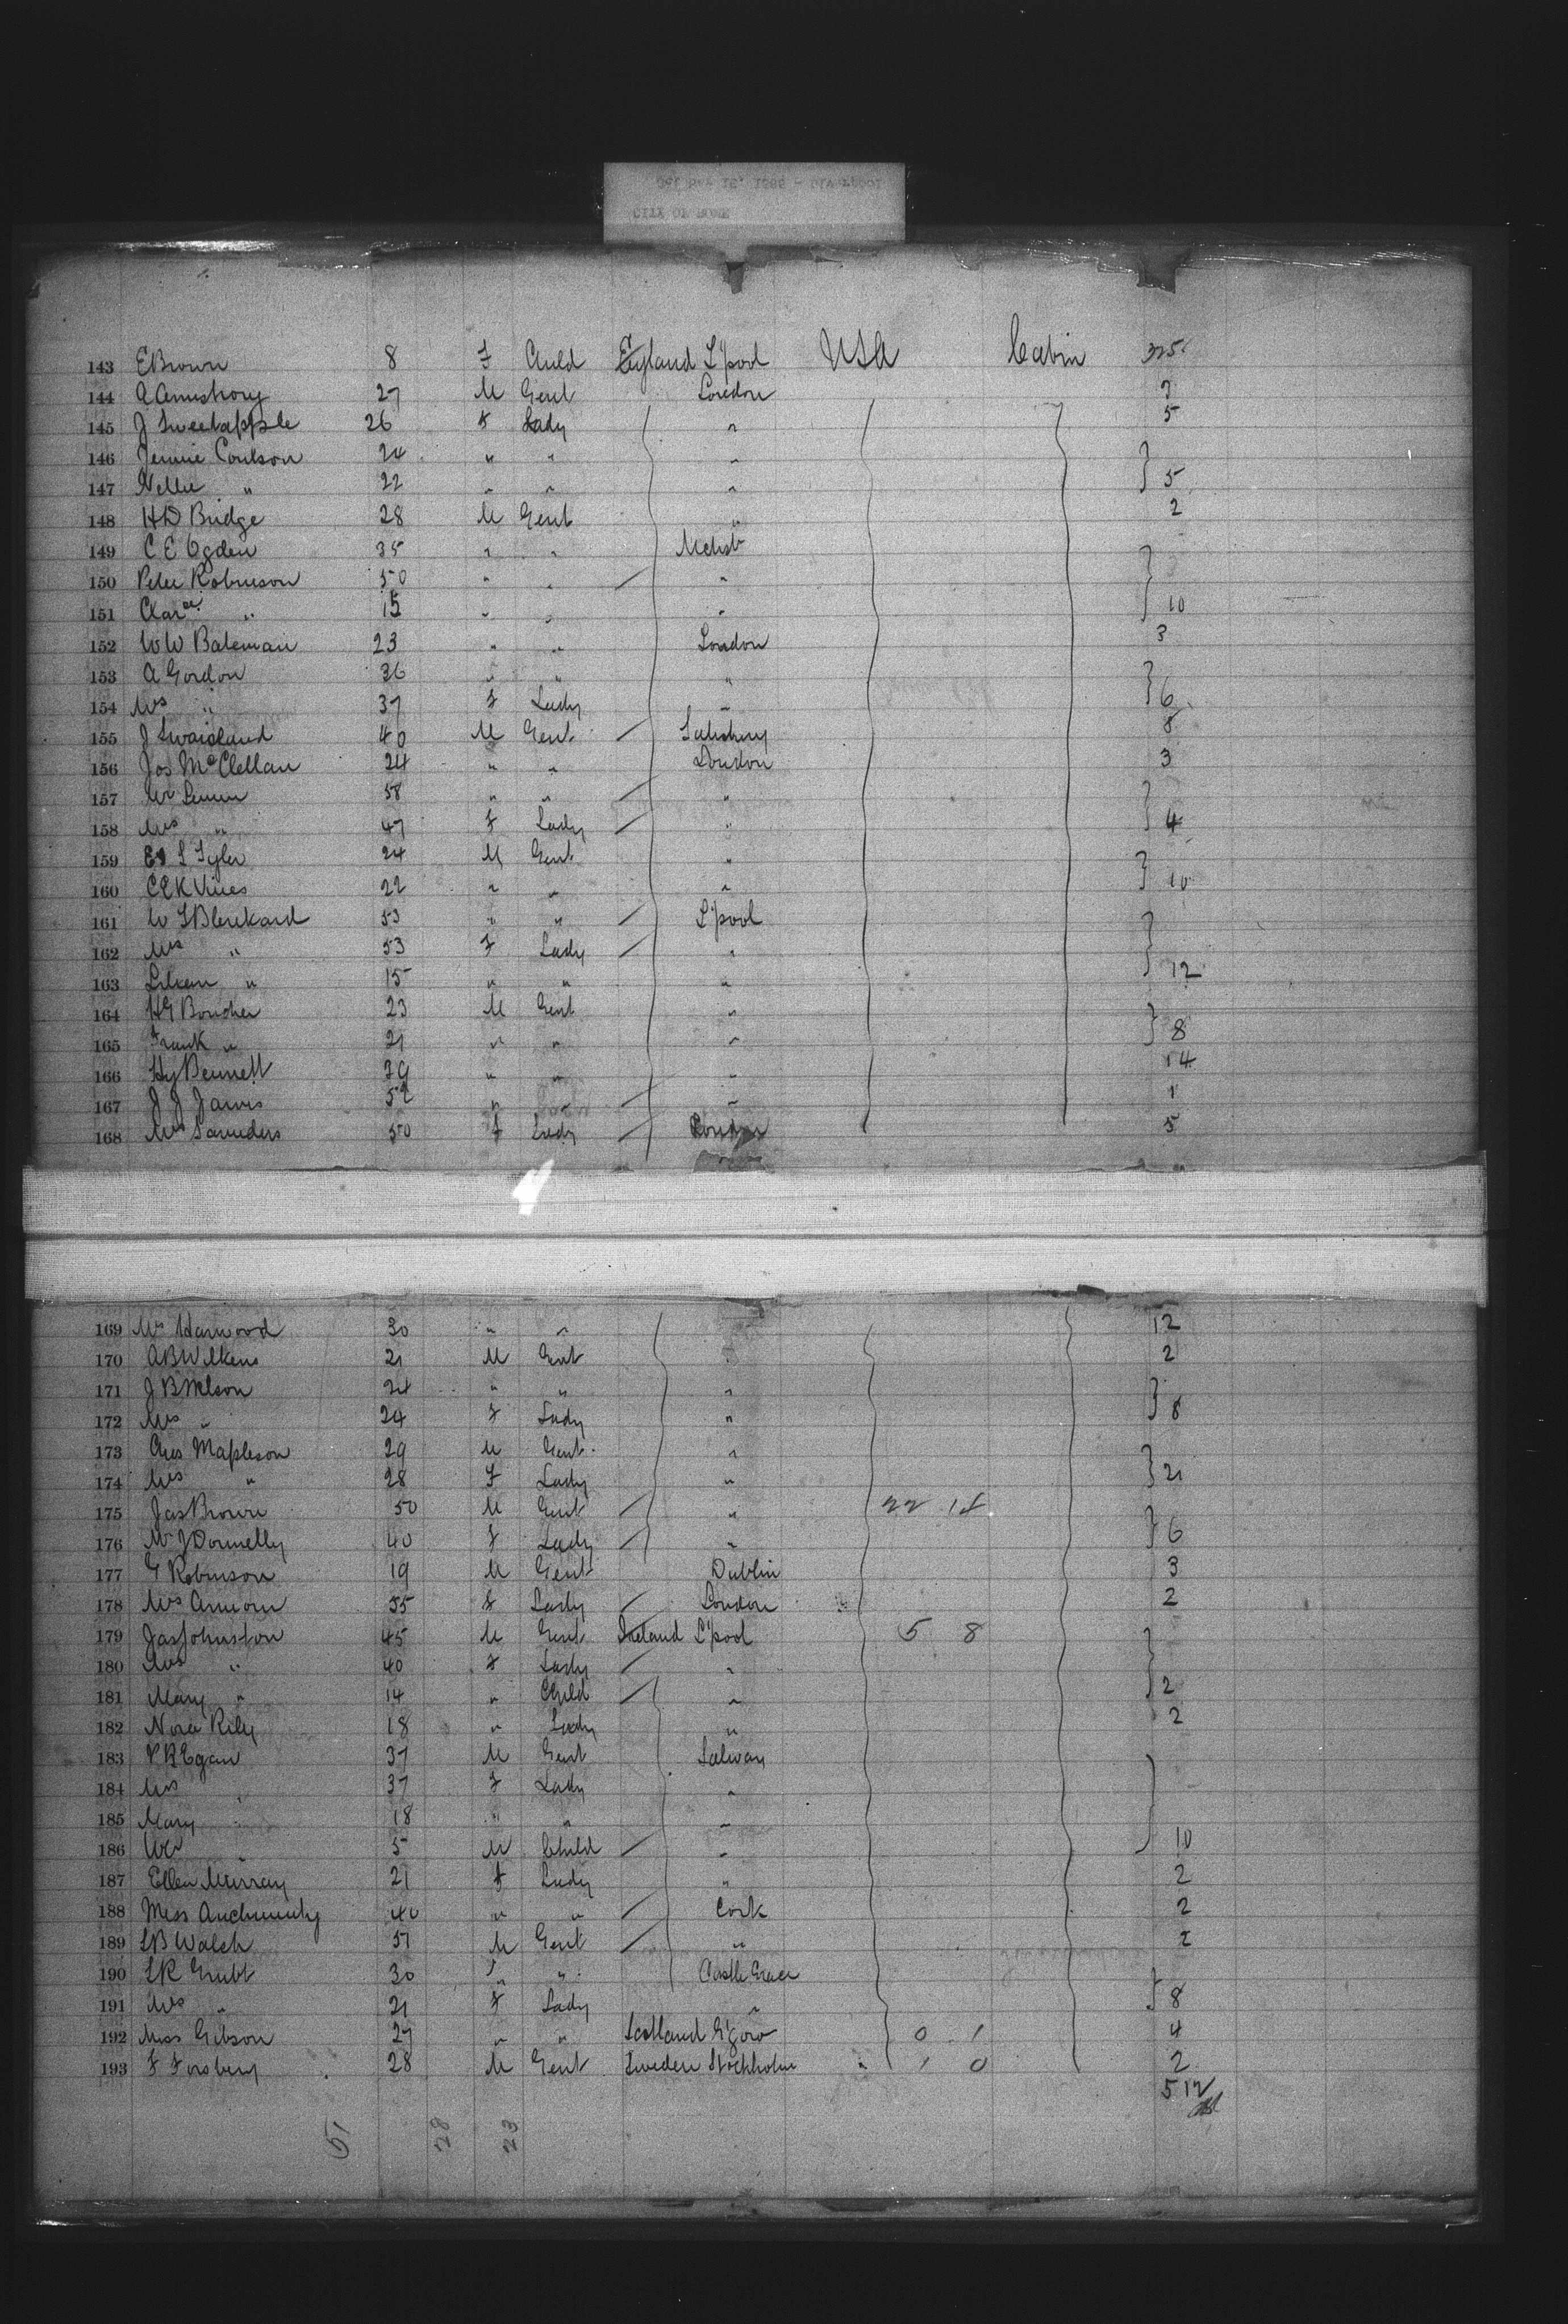 CITY OF ROME
143 E Brown 8 F Child England L'pool USA Cabin 325
144 A Armstrong 27 M Gent London 3
145 J Sweetapple 26 F Lady " 5
146 Jennie Coulson 24 " " "
147 Nellie " 22 " " " 5
148 H D Bridge 28 M Gent " 2
149 C E Ogden 35 " " Mchstr
150 Peter Robinson 50 " " "
151 Clara " 15 " " " 10
152 W W Bateman 23 " " London 3
153 A Gordon 36 " " "
154 Mrs " 37 F Lady " 6
155 J Swaisland 40 M Gent Salisbury 8
156 Jos McClellan 24 " " London 3
157 Mr 58 " " "
158 Mrs " 47 F Lady " 4
159 E S Tyler 24 M Gent "
160 C E K Vines 22 " " " 10
161 W S Blenkard 53 " " L'pool
162 Mrs " 53 F Lady "
163 Lilian " 15 " " " 12
164 H G Boucher 23 M Gent "
165 Frank " 21 " " " 8
166 Hy Bennett 39 " " " 14
167 J J Jarvis 52 " " " 1
168 Mrs Saunders 50 F Lady London 5
169 Mrs Harwood 30 " " 12
170 A B Wilkens 21 M Gent " 2
171 J B Nelson 24 " " "
172 Mrs " 24 F Lady " 8
173 Chas Mapleson 29 M Gent "
174 Mrs " 28 F Lady " 21
175 Jas Brown 50 M Gent " 22 18
176 Mrs J Donnelly 40 F Lady " 6
177 G Robinson 19 M Gent Dublin 3
178 Mrs 55 F Lady London 2
179 Jas Johnston 45 M Gent Ireland L'pool 5 8
180 Mrs " 40 F Lady "
181 Mary " 14 " Child " 2
182 Nora Rily 18 " Lady " 2
183 P B Egan 37 M Gent Galway
184 Mrs " 37 F Lady "
185 Mary " 18 " " "
186 Wm " 5 M Child " 10
187 Ellen Murray 21 F Lady " 2
188 Miss Auchmuty 40 " " Cork 2
189 S B Walsh 51 M Gent " 2
190 S R Grubb 30 " " Castle Grace
191 Mrs " 21 F Lady " 8
192 Miss Gibson 27 " " Scotland G'gow 0 1 4
193 F Forsberg 28 M Gent Sweden Stockholm 1 0 2
512
51 28 23